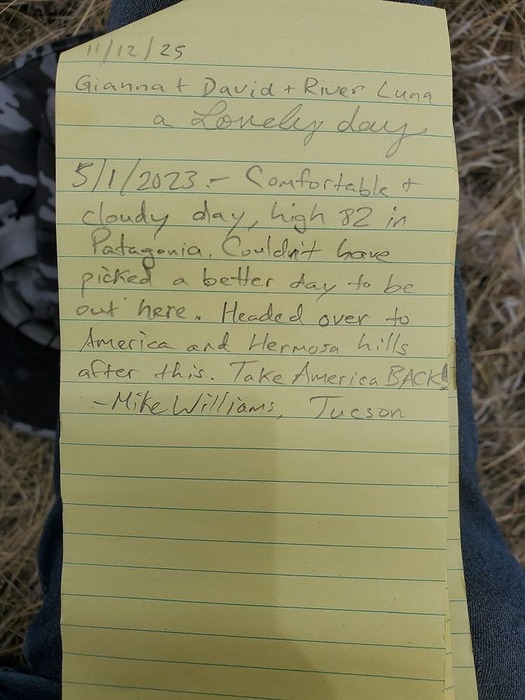 11/12/25
Gianna + David + River Luna
a Lovely day.
5/1/2023 - Comfortable +
cloudy day, high 82 in
Patagonia. Couldn't have
picked a better day to be
out here. Headed over to
America and Hermosa hills
after this. Take America BACK!
-Mike Williams, Tucson